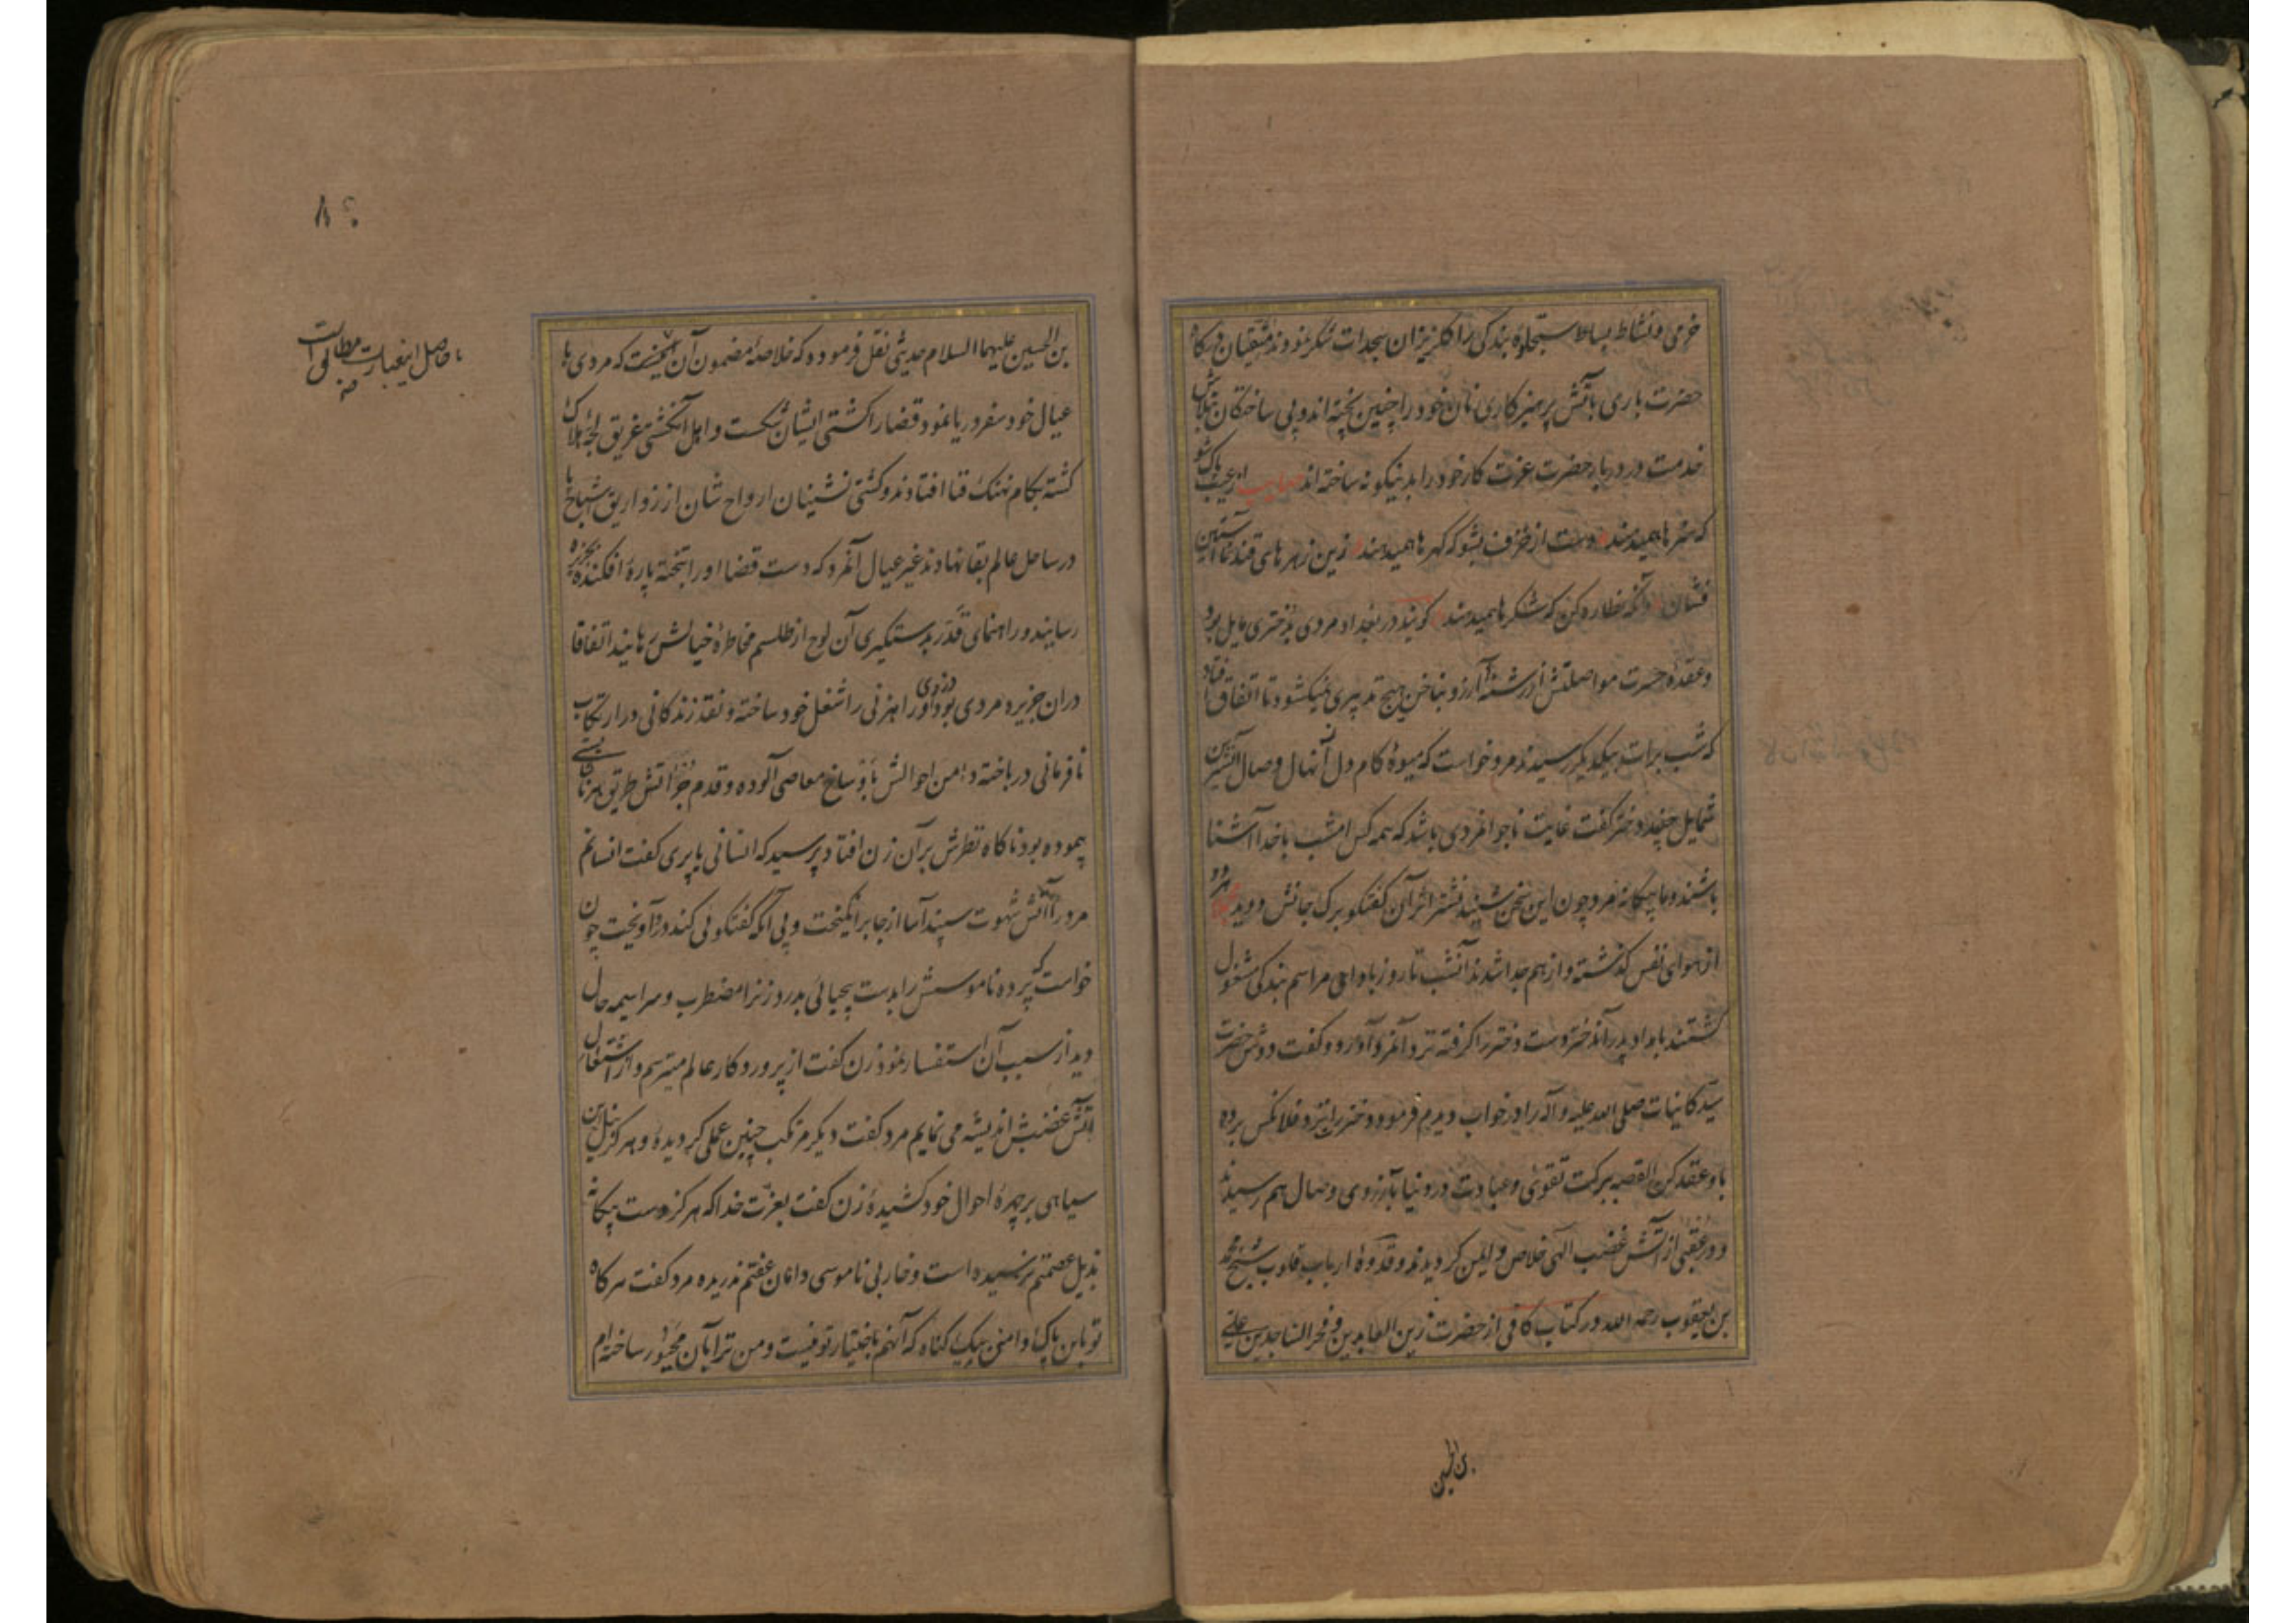 خرمی و نشاط بساط سجلوهٔ بندکی را فکریزان سجدات شکر نمودند متقیان درکاه
حضرت باری بآتش پرهیزکاری نان خود را چنین پخته اند و پی ساختکان تلاش
خدمت در دربار حضرت عزت کار خود را بدینکونه ساخته اند صایب از عیب پاک شو
که هنرها همیدهند دست از خزف بشو که کهرها همیدهند زین زهرهای قند نما آستین
فشان وانکه نظاره کن که شکرها همیدهند کویند در بغداد مردی بدختری مایل بود
و عقدهٔ حسرت مواصلتش از رشتهٔ آرزو بناخن هیچ تدبیری نمیکشود تا اتفاق افتاد
که شب برات بیکدیکر رسیدند مرد خواست که میوهٔ کام دل از نهال وصال آن شیرین
شمایل چیند دختر کفت غایت ناجوانمردی باشد که همه کس امشب با خدا آشنا
باشند و ما بیکانه مرد چون این سخن شنید نشتر اثر آن کفتکو برک جانش دوید هر دو
از هوای نفس کذشته و از هم جدا شدند آنشب تا روز باداء مراسم بندکی مشغول
کشتند بامداد پدر آندختر دست دختر را کرفته نزد آنمرد آورد و کفت دوش حضرت
سید کاینات صلی الله علیه و آله را در خواب دیدم فرمود دختر را نزد فلانکس برده
باو عقد کن القصه ببرکت تقوی و عبادت در دنیا بآرزوی وصال هم رسیدند
و در عقبی از آتش غضب الهی خلاص و ایمن کردیدند و قدوهٔ ارباب قلوب شیخ محمد
بن یعقوب رحمه الله در کتاب کافی از حضرت زین العابدین و فخر الساجدین علی
بن الحسین
بن الحسین علیهما السلام حدیثی نقل فرموده که خلاصهٔ مضمون آن اینست که مردی با
عیال خود سفر دریا نمود قضا را کشتی ایشان شکست و اهل آنکشتی غریق لجهٔ هلاک
کشته بکام نهنک فنا افتادند و کشتی نشینان ارواح شان از زواریق اشباح پا
در ساحل عالم بقا نهادند غیر عیال آنمرد که دست قضا او را بتخته پارهٔ افکنده بجزیرهٔ
رسانید و راهنمای قدر بدستکیری آن لوح از طلسم مخاطرهٔ خیالش رهانید اتفاقا
دران جزیره مردی بود دزدی و راهزنی را شغل خود ساخته و نقد زندکانی در ارتکاب
نافرمانی درباخته دامن احوالش باوساخ معاصی آلوده و قدم جراتش طریق هر ناشایستی
پیموده بود ناکاه نظرش بر آن زن افتاد پرسید که انسانی یا پری کفت انسانم
مرد را آتش شهوت سپند آسا از جا برانکیخت و بی آنکه کفتکوئی کند درو آویخت چون
خواست که پرده ناموسش را بدست بیحیائی بدرد زنرا مضطرب و سراسیمه حال
دید از سبب آن استفسار نمود زن کفت از پروردکار عالم میترسم و از اشتعال
آتش غضبش اندیشه می نمایم مرد کفت دیکر مرتکب چنین عملی کردیدهٔ و هرکز نیل این
سیاهی بر چهرهٔ احوال خود کشیدهٔ زن کفت بعزت خدا که هرکز دست بیکانهٔ
بذیل عصمتم نرسیده است و خار بی ناموسی دامان عفتم ندریده مرد کفت هرکاه
تو باین پاک دامنی بیک کناه که آنهم باختیار تو نیست و من ترا بآن مجبور ساخته ام
حاصل اینعبارت
منه